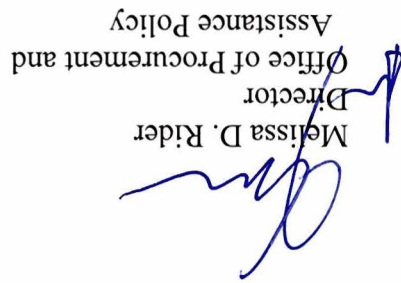 Melissa D. Rider
Director
Office of Procurement and
Assistance Policy